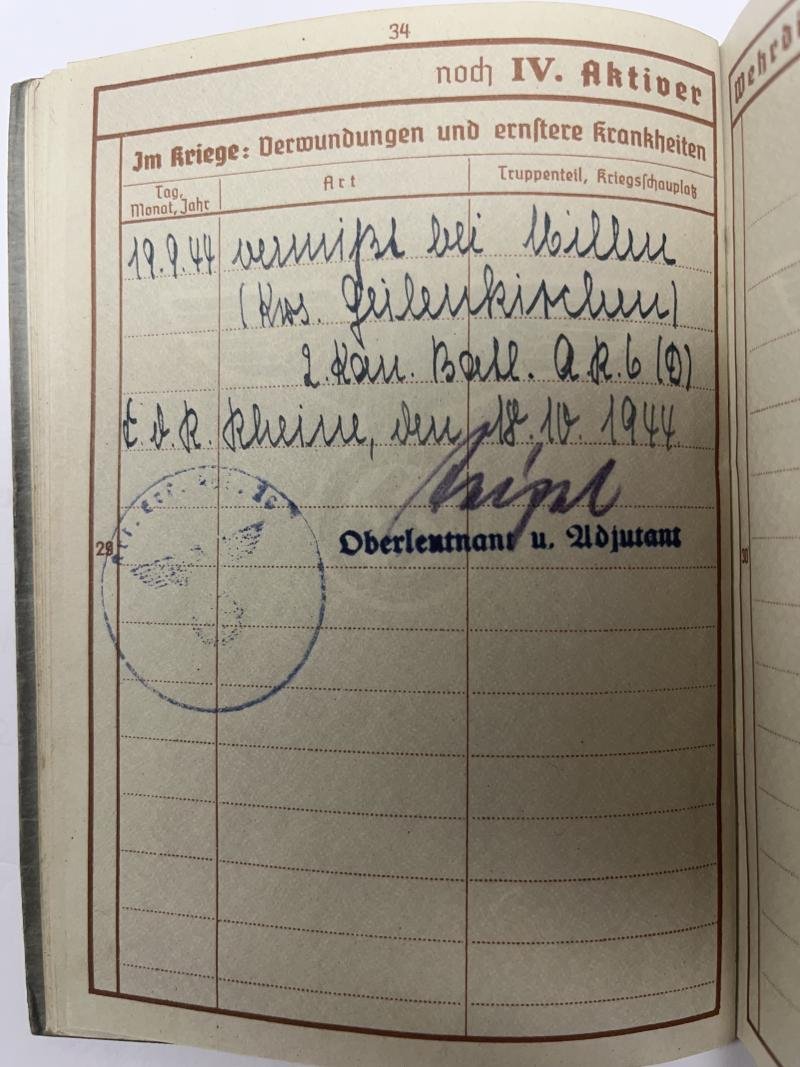 34
noch IV. Aktiver
Wehrd
Im Kriege: Verwundungen und ernstere Krankheiten
Tag, Monat, Jahr
Art
Truppenteil, Kriegsschauplatz
19.9.44 vermißt bei Millen
(Krs. Geilenkirchen)
2. Kan. Batl. A.R. 6 (D)
E.d.R. Rheine, den 18.10.1944
Oberleutnant u. Adjutant
29
30